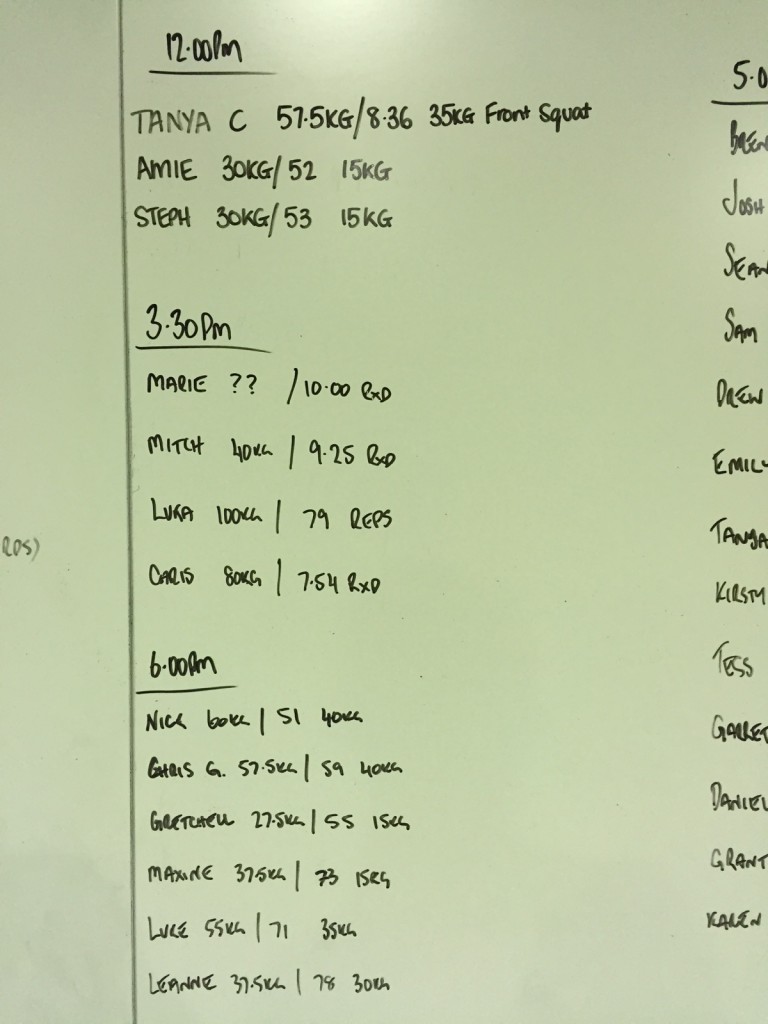 12.00pm
TANYA C 57.5KG/8.36 35KG Front Squat
AMIE 30KG/52 15KG
STEPH 30KG/53 15KG
3.30pm
MARIE ?? /10.00 RxD
MITCH 40KG | 9.25 RxD
LUKA 100KG | 79 REPS
CARIS 80KG | 7.54 RxD
6.00pm
NICK 60KG | 51 40KG
CHRIS G. 57.5KG | 59 40KG
GRETCHELL 27.5KG | 55 15KG
MAXINE 37.5KG | 73 15KG
LUKE 55KG | 71 35KG
LEANNE 37.5KG | 78 30KG
RDS)
5.0
BREN
JOSH
SEAN
SAM
DREW
EMILY
TANYA
KIRSTY
TESS
GARRET
DANIEL
GRANT
KAREN